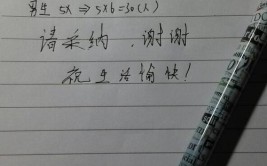 男生 5x ⇒ 5×6=30(人)
请采纳，谢谢
祝生活愉快！